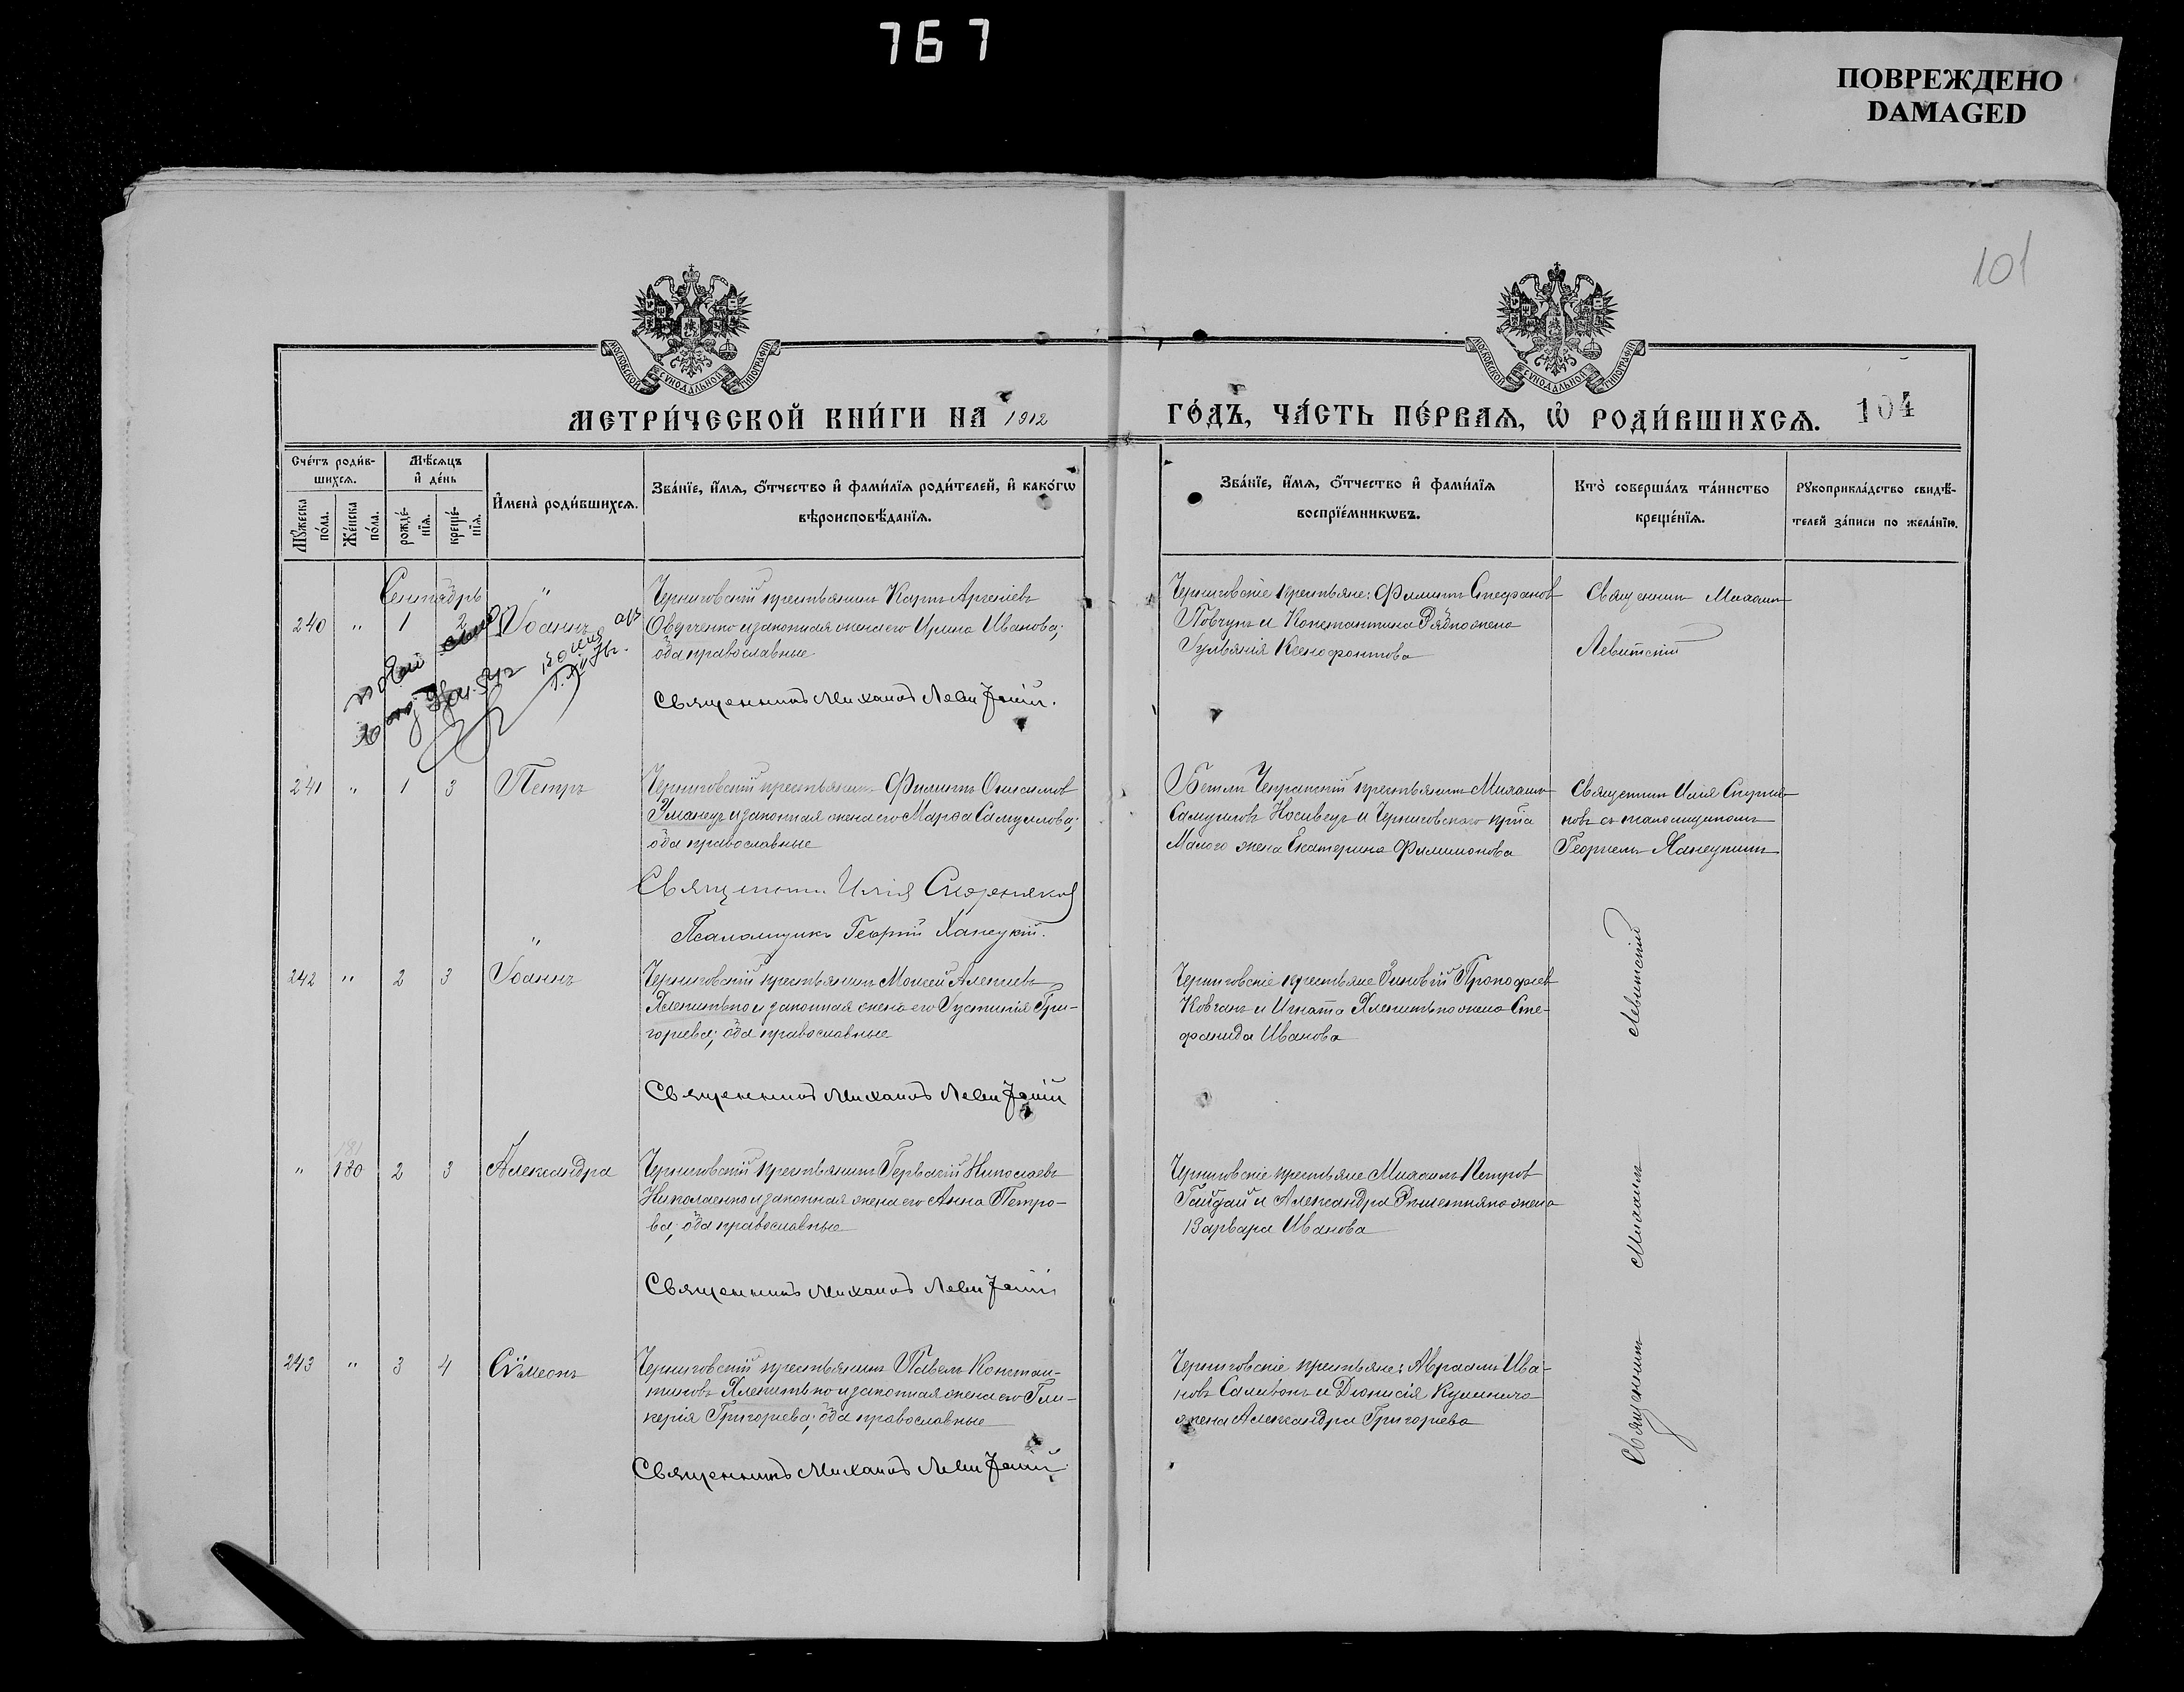 767
ПОВРЕЖДЕНО
DAMAGED
101
МОСКОВСКОЙ СѴНОДАЛЬНОЙ ТИПОГРАФІИ
МОСКОВСКОЙ СѴНОДАЛЬНОЙ ТИПОГРАФІИ
МЕТРИ́ЧЕСКОЙ КНИ́ГИ НА 1912
ГО́ДЪ, ЧА́СТЬ ПЕ́РВАѦ, Ѡ҆ РОДИ́ВШИХСѦ. 104
Сче́тъ роди́в-
шихсѧ.
Мꙋ́жеска по́ла.
Же́нска по́ла.
Мѣ́сѧцъ
и҆ де́нь
рожде́-
нїѧ.
креще́-
нїѧ.
И҆мена̀ роди́вшихсѧ.
Зва́нїе, и҆́мѧ, ѻ҆́тчество и҆ фами́лїѧ роди́телей, и҆ како́гѡ
вѣроисповѣ́данїѧ.
Зва́нїе, и҆́мѧ, ѻ҆́тчество и҆ фами́лїѧ
воспрїе́мникѡвъ.
Кто̀ соверша́лъ та́инство
креще́нїѧ.
Рꙋкоприкла́дство свидѣ́-
телей за́писи по жела́нїю.
Сентябрь
240 " 1 2 Іоаннъ
Черниговскій крестьянинъ Карпъ Арсеніевъ
Овдченко и законная жена его Ирина Иванова;
оба православные
Священникъ Михаилъ Левитскій.
Черниговскіе крестьяне: Филиппъ Стефановъ
Повчунъ и Константина Рядно жена
Гульянія Ксенофонтова
Священникъ Михаилъ
Левитскій
241 " 1 3 Петръ
Черниговскій крестьянинъ Филиппъ Онисимовъ
Уманецъ и законная жена его Марфа Самуилова;
оба православные
Священникъ Илія Скорняковъ
Псаломщикъ Георгій Ханецкій.
крестьянинъ Михаилъ
Самуиловъ Носивецъ и Черниговского кр-на
Малого жена Екатерина Филимонова
Священникъ Илія Скорня-
ковъ съ псаломщикомъ
Георгіемъ Ханецкимъ
242 " 2 3 Іоаннъ
Черниговскій крестьянинъ Моисей Алексіевъ
Хлепитько и законная жена его Іустинія Гри-
горіева; оба православные
Священникъ Михаилъ Левитскій
Черниговскіе крестьяне Зиновій Прокофіевъ
Ковганъ и Игната Хлепитько жена Сте-
фанида Иванова
" 180 2 3 Александра
Черниговскій крестьянинъ Гервасій Николаевъ
Николаенко и законная жена его Анна Петро-
ва; оба православные
Священникъ Михаилъ Левитскій
Черниговскіе крестьяне Михаилъ Петровъ
Гайдай и Александра жена
Варвара Иванова
243 " 3 4 Сѵмеонъ
Черниговскій крестьянинъ Павелъ Констан-
тиновъ Хлепитько и законная жена его Гли-
керія Григоріева; оба православные
Священникъ Михаилъ Левитскій
Черниговскіе крестьяне: Авраамъ Ива-
новъ Саливонъ и Діонисія Кулинича
жена Александра Григоріева
Священникъ Михаилъ Левитскій